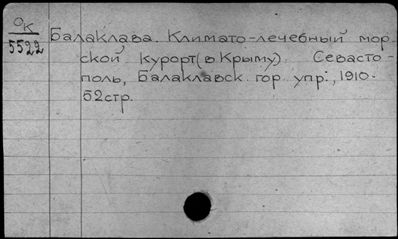 ОК
5522
Балаклава. Климато-лечебный мор
ской курорт (в Крыму). Севасто-
поль, Балаклавск. гор. упр., 1910.
52стр.